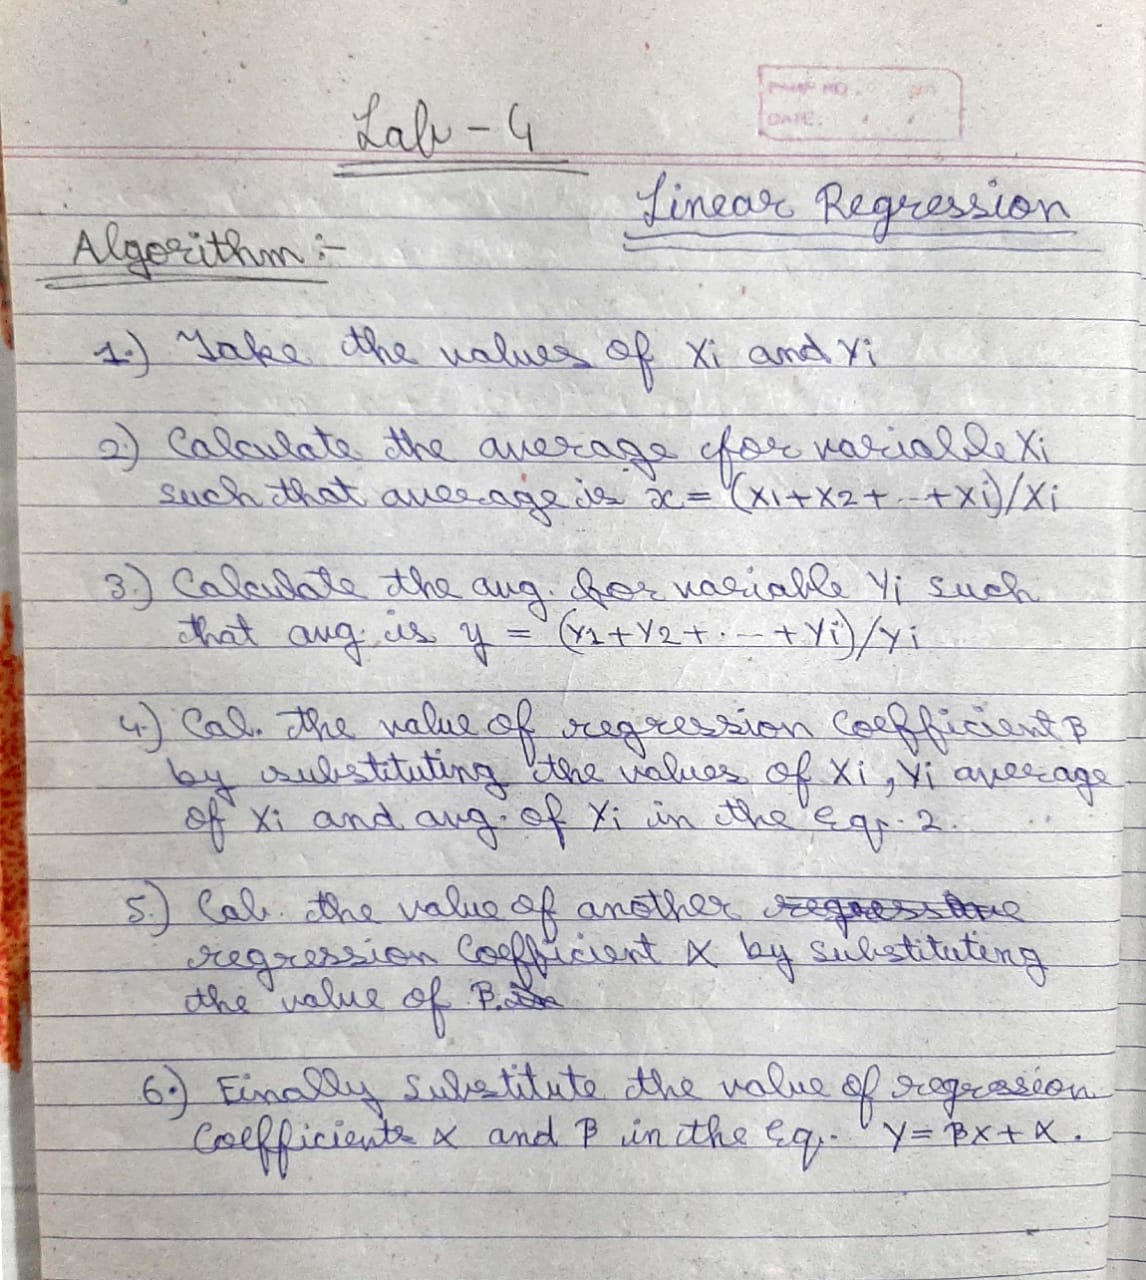 Lab - 4
PAGE NO.
DATE:
Linear Regression
Algorithm :-
1.) Take the values of Xi and Yi
2.) Calculate the average for variable Xi
such that average is x = (X1+X2+...+Xi)/Xi
3.) Calculate the avg. for variable Yi such
that avg. is y = (Y1+Y2+...+Yi)/Yi
4.) Cal. the value of regression Coefficient β
by substituting the values of Xi, Yi average
of Xi and avg. of Yi in the Eq. 2.
5.) Cal. the value of another
regression Coefficient α by substituting
the value of β.
6.) Finally substitute the value of regression
Coefficients α and β in the Eq. Y = βX + α.